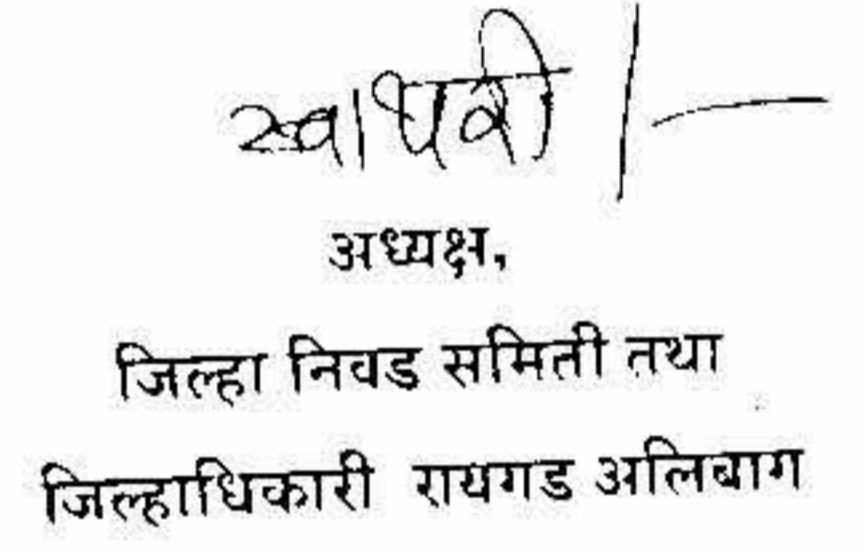 स्वाक्षरी/-
अध्यक्ष,
जिल्हा निवड समिती तथा
जिल्हाधिकारी रायगड अलिबाग